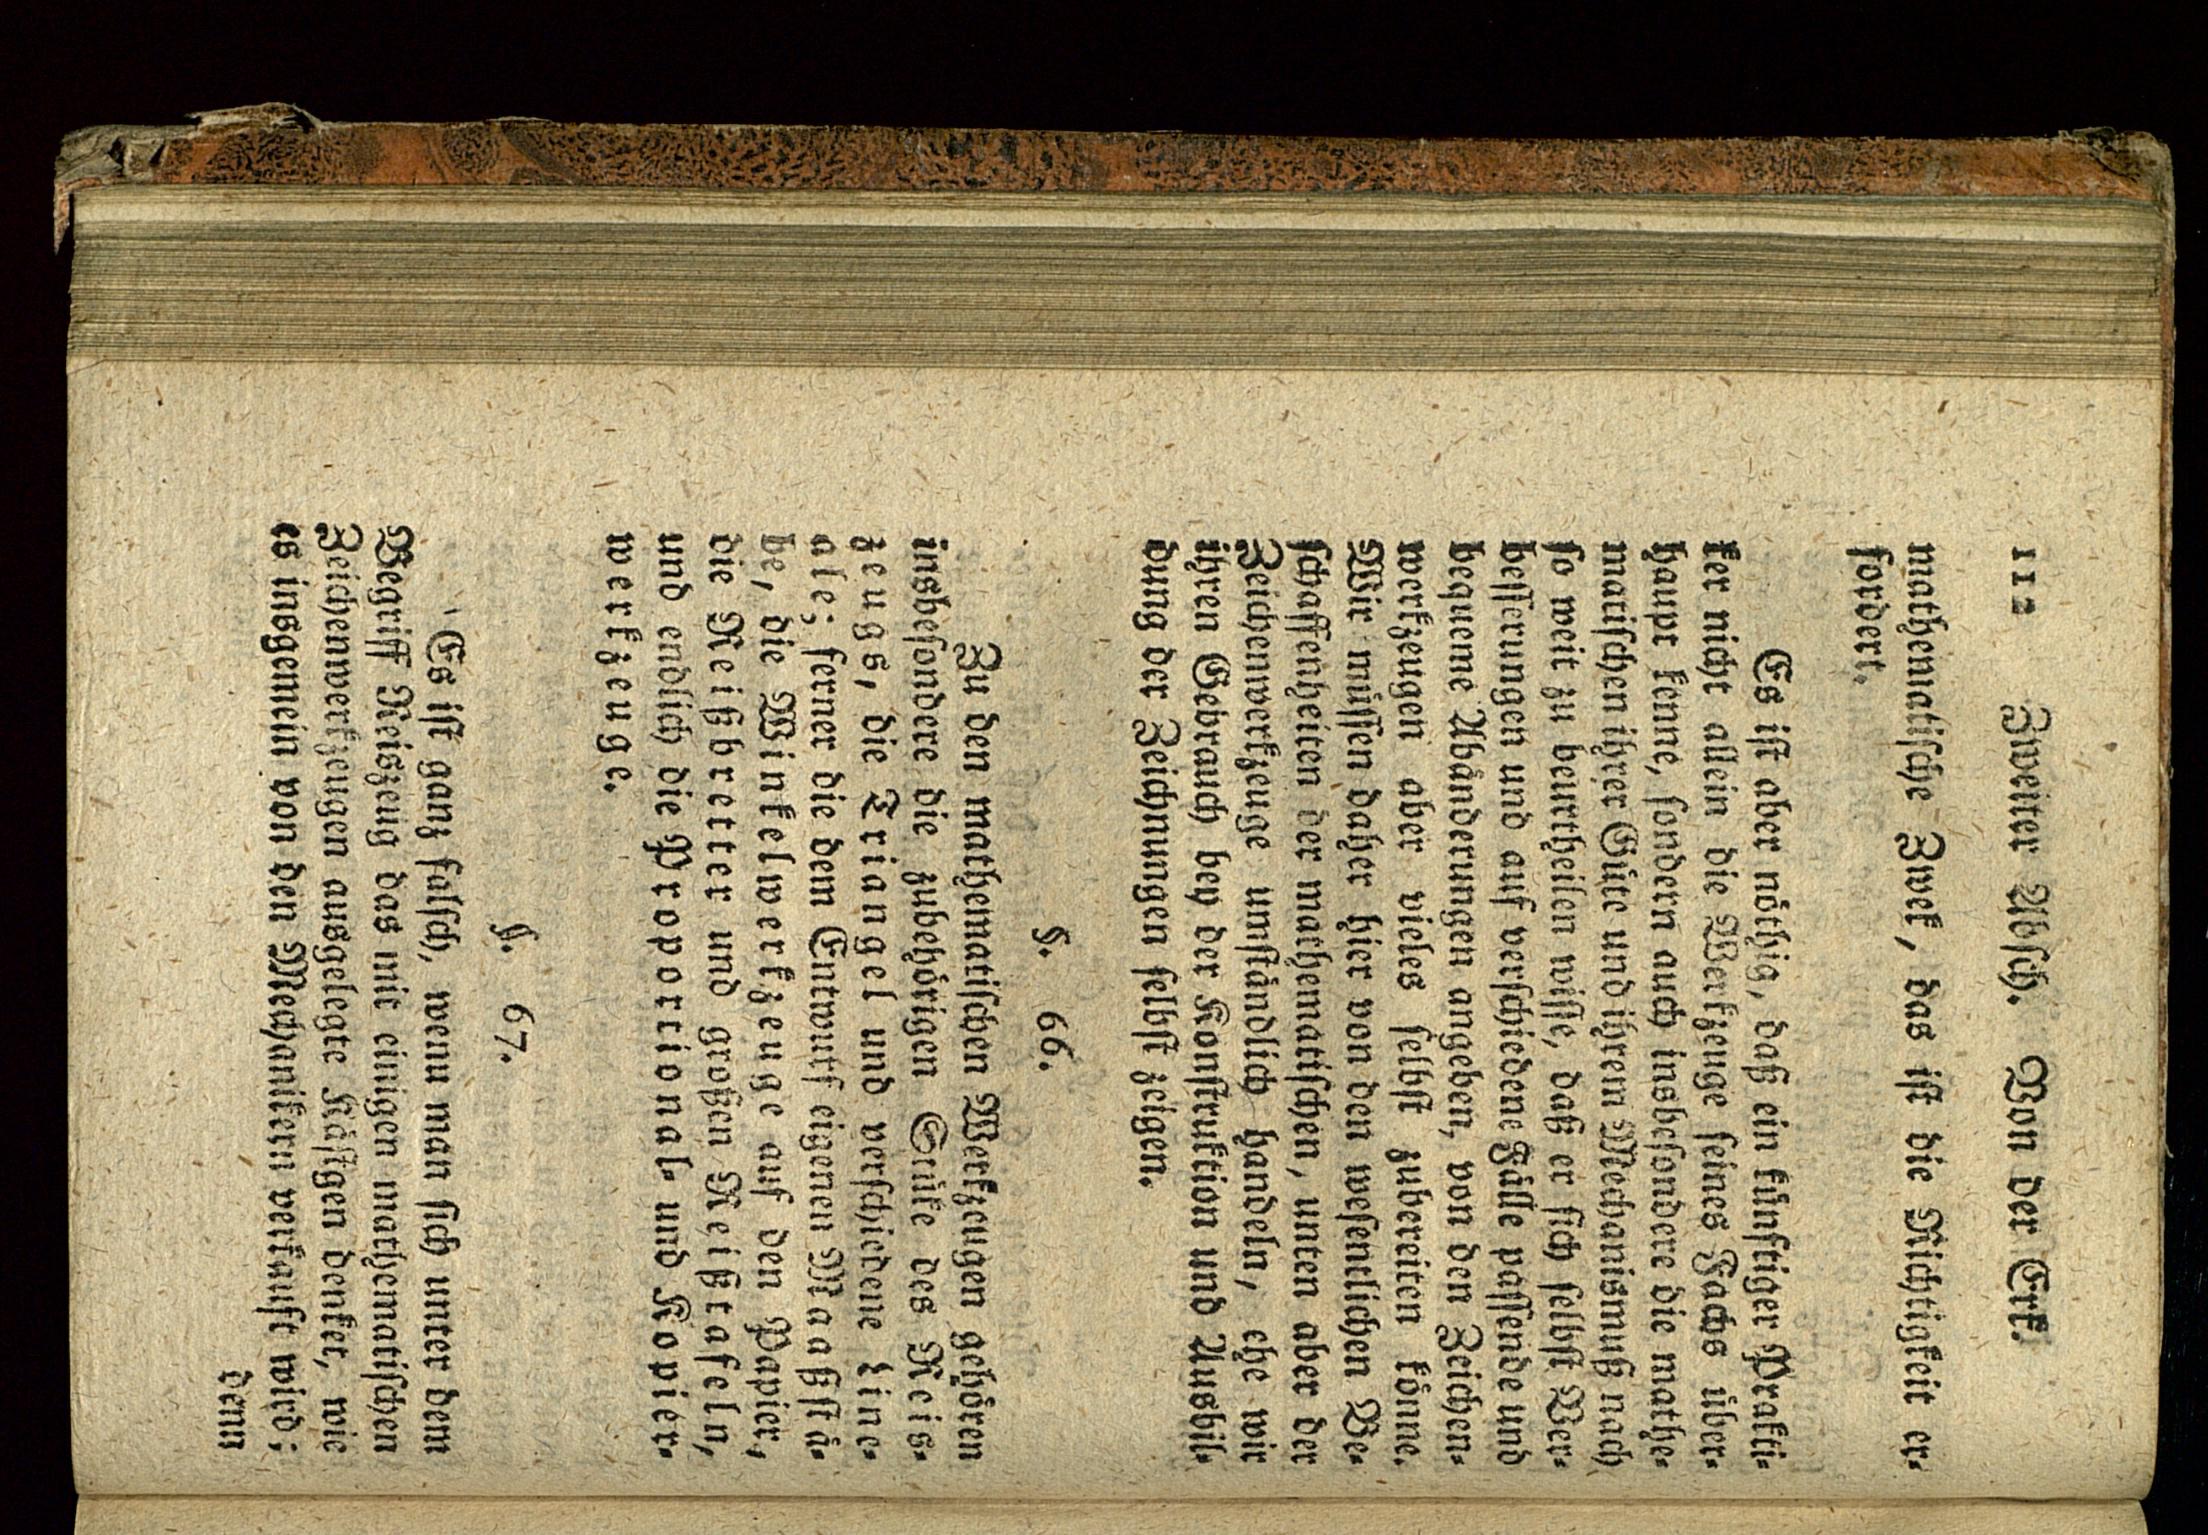 112 Zweiter Abſch. Von der Erk.
mathematiſche Zwek, das iſt die Richtigkeit er-
fordert.
Es iſt aber nöthig, daß ein künftiger Prakti-
ker nicht allein die Werkzeuge ſeines Fachs über-
haupt kenne, ſondern auch insbeſondere die mathe-
matiſchen ihrer Güte und ihrem Mechanismuß nach
ſo weit zu beurtheilen wiſſe, daß er ſich ſelbſt Ver-
beſſerungen und auf verſchiedene Fälle paſſende und
bequeme Abänderungen angeben, von den Zeichen-
werkzeugen aber vieles ſelbſt zubereiten könne.
Wir müſſen daher hier von den weſentlichen Be-
ſchaffenheiten der mathematiſchen, unten aber der
Zeichenwerkzeuge umſtändlich handeln, ehe wir
ihren Gebrauch bey der Konſtruktion und Ausbil-
dung der Zeichnungen ſelbſt zeigen.
§. 66.
Zu den mathematiſchen Werkzeugen gehören
insbeſondere die zubehörigen Stüke des Reis-
zeugs, die Triangel und verſchiedene Line-
ale; ferner die dem Entwurf eigenen Maaßſtä-
be, die Winkelwerkzeuge auf den Papier,
die Reißbretter und großen Reißtafeln,
und endlich die Proportional- und Kopier-
werkzeuge.
§. 67.
Es iſt ganz falſch, wenn man ſich unter dem
Begriff Reiszeug das mit einigen mathematiſchen
Zeichenwerkzeugen ausgelegte Käſtgen denket, wie
es insgemein von den Mechanikern verkauft wird;
denn